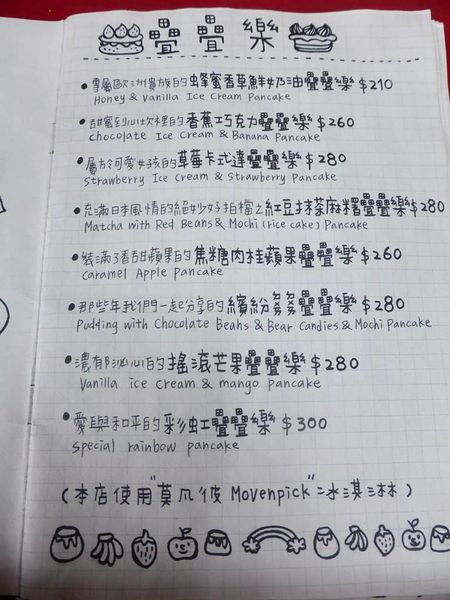 疊疊樂
●專屬歐洲貴族的蜂蜜香草鮮奶油疊疊樂$210
Honey & Vanilla Ice Cream Pancake
●甜蜜到心坎裡的香蕉巧克力疊疊樂$260
chocolate Ice Cream & Banana Pancake
●屬於可愛女孩的草莓卡式達疊疊樂$280
Strawberry Ice Cream & Strawberry Pancake
●充滿日本風情的絕妙好拍檔之紅豆抹茶麻糬疊疊樂$280
Matcha with Red Beans & Mochi (rice cake) Pancake
●裝滿了香甜蘋果的焦糖肉桂蘋果疊疊樂$260
Caramel Apple Pancake
●那些年我們一起分享的繽紛多多疊疊樂$280
Pudding with Chocolate Beans & Bear Candies & Mochi Pancake
●濃郁沁心的搖滾芒果疊疊樂$280
Vanilla ice cream & mango pancake
●愛與和平的彩虹疊疊樂$300
Special rainbow pancake
(本店使用"莫凡彼 Movenpick"冰淇淋)